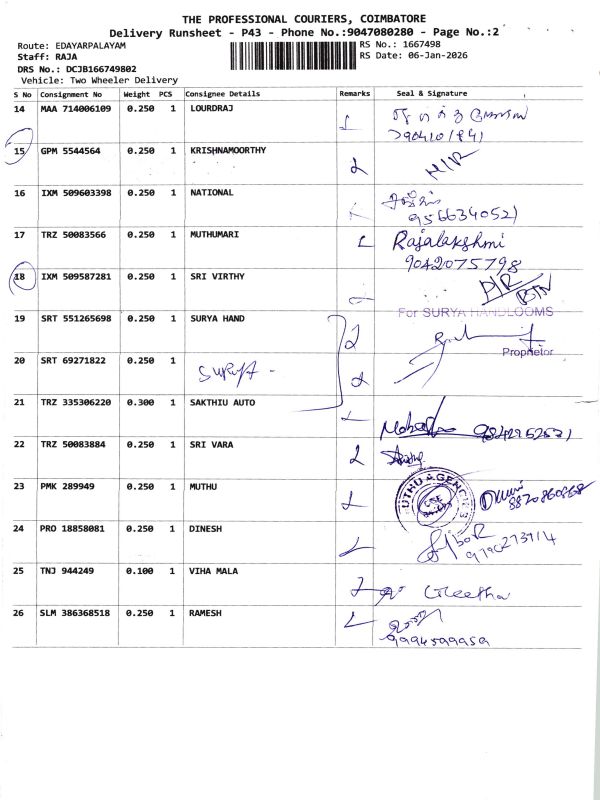 THE PROFESSIONAL COURIERS, COIMBATORE
Delivery Runsheet - P43 - Phone No.:9047080280 - Page No.:2
Route: EDAYARPALAYAM
RS No.: 1667498
Staff: RAJA
RS Date: 06-Jan-2026
DRS No.: DCJB166749802
Vehicle: Two Wheeler Delivery
S No Consignment No Weight PCS Consignee Details Remarks Seal & Signature
14 MAA 714006109 0.250 1 LOURDRAJ
15 GPM 5544564 0.250 1 KRISHNAMOORTHY N/R
16 IXM 509603398 0.250 1 NATIONAL
9566340521
17 TRZ 50083566 0.250 1 MUTHUMARI Rajalakshmi
9042075798
18 IXM 509587281 0.250 1 SRI VIRTHY D/R
19 SRT 551265698 0.250 1 SURYA HAND For SURYA HANDLOOMS
Proprietor
20 SRT 69271822 0.250 1 SURYA -
21 TRZ 335306220 0.300 1 SAKTHIU AUTO
22 TRZ 50083884 0.250 1 SRI VARA
23 PMK 289949 0.250 1 MUTHU UTHU AGENCIES
24 PRO 18858081 0.250 1 DINESH
25 TNJ 944249 0.100 1 VIHA MALA Geetha
26 SLM 386368518 0.250 1 RAMESH
9994599959